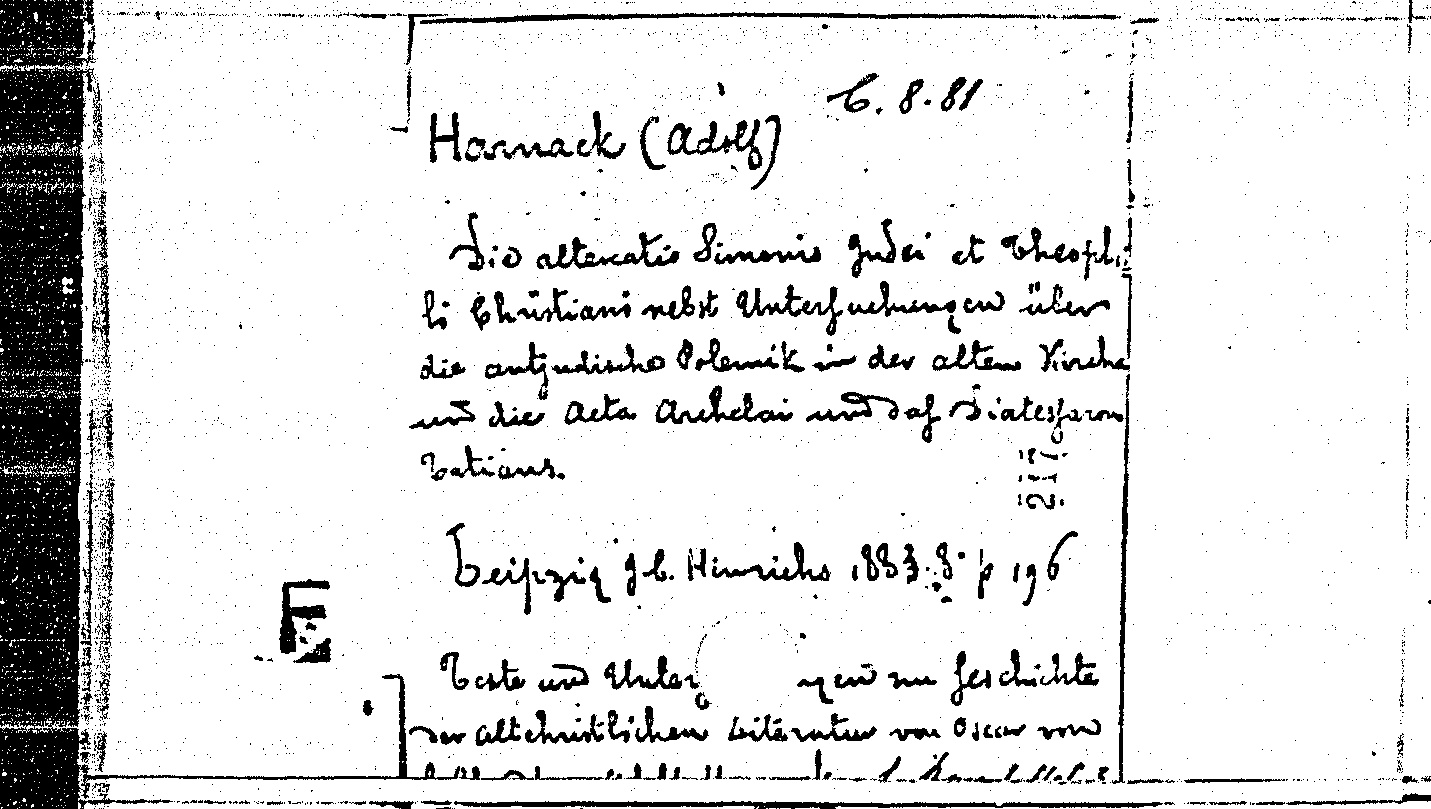 C. 8.81
Harnack (Adolf)
Die altercatio Simonis Judei et Theophi
li Christiani nebst Untersuchungen über
die antjudische Polemik in der alten Kirche
und die Acta Archelai und das Diatessaron
Tatians.
217
Leipzig J C. Hinrichs 1883. 8° p 196
Texte und Unter gen zur Geschichte
der altchristlichen Literatur von Oscar von